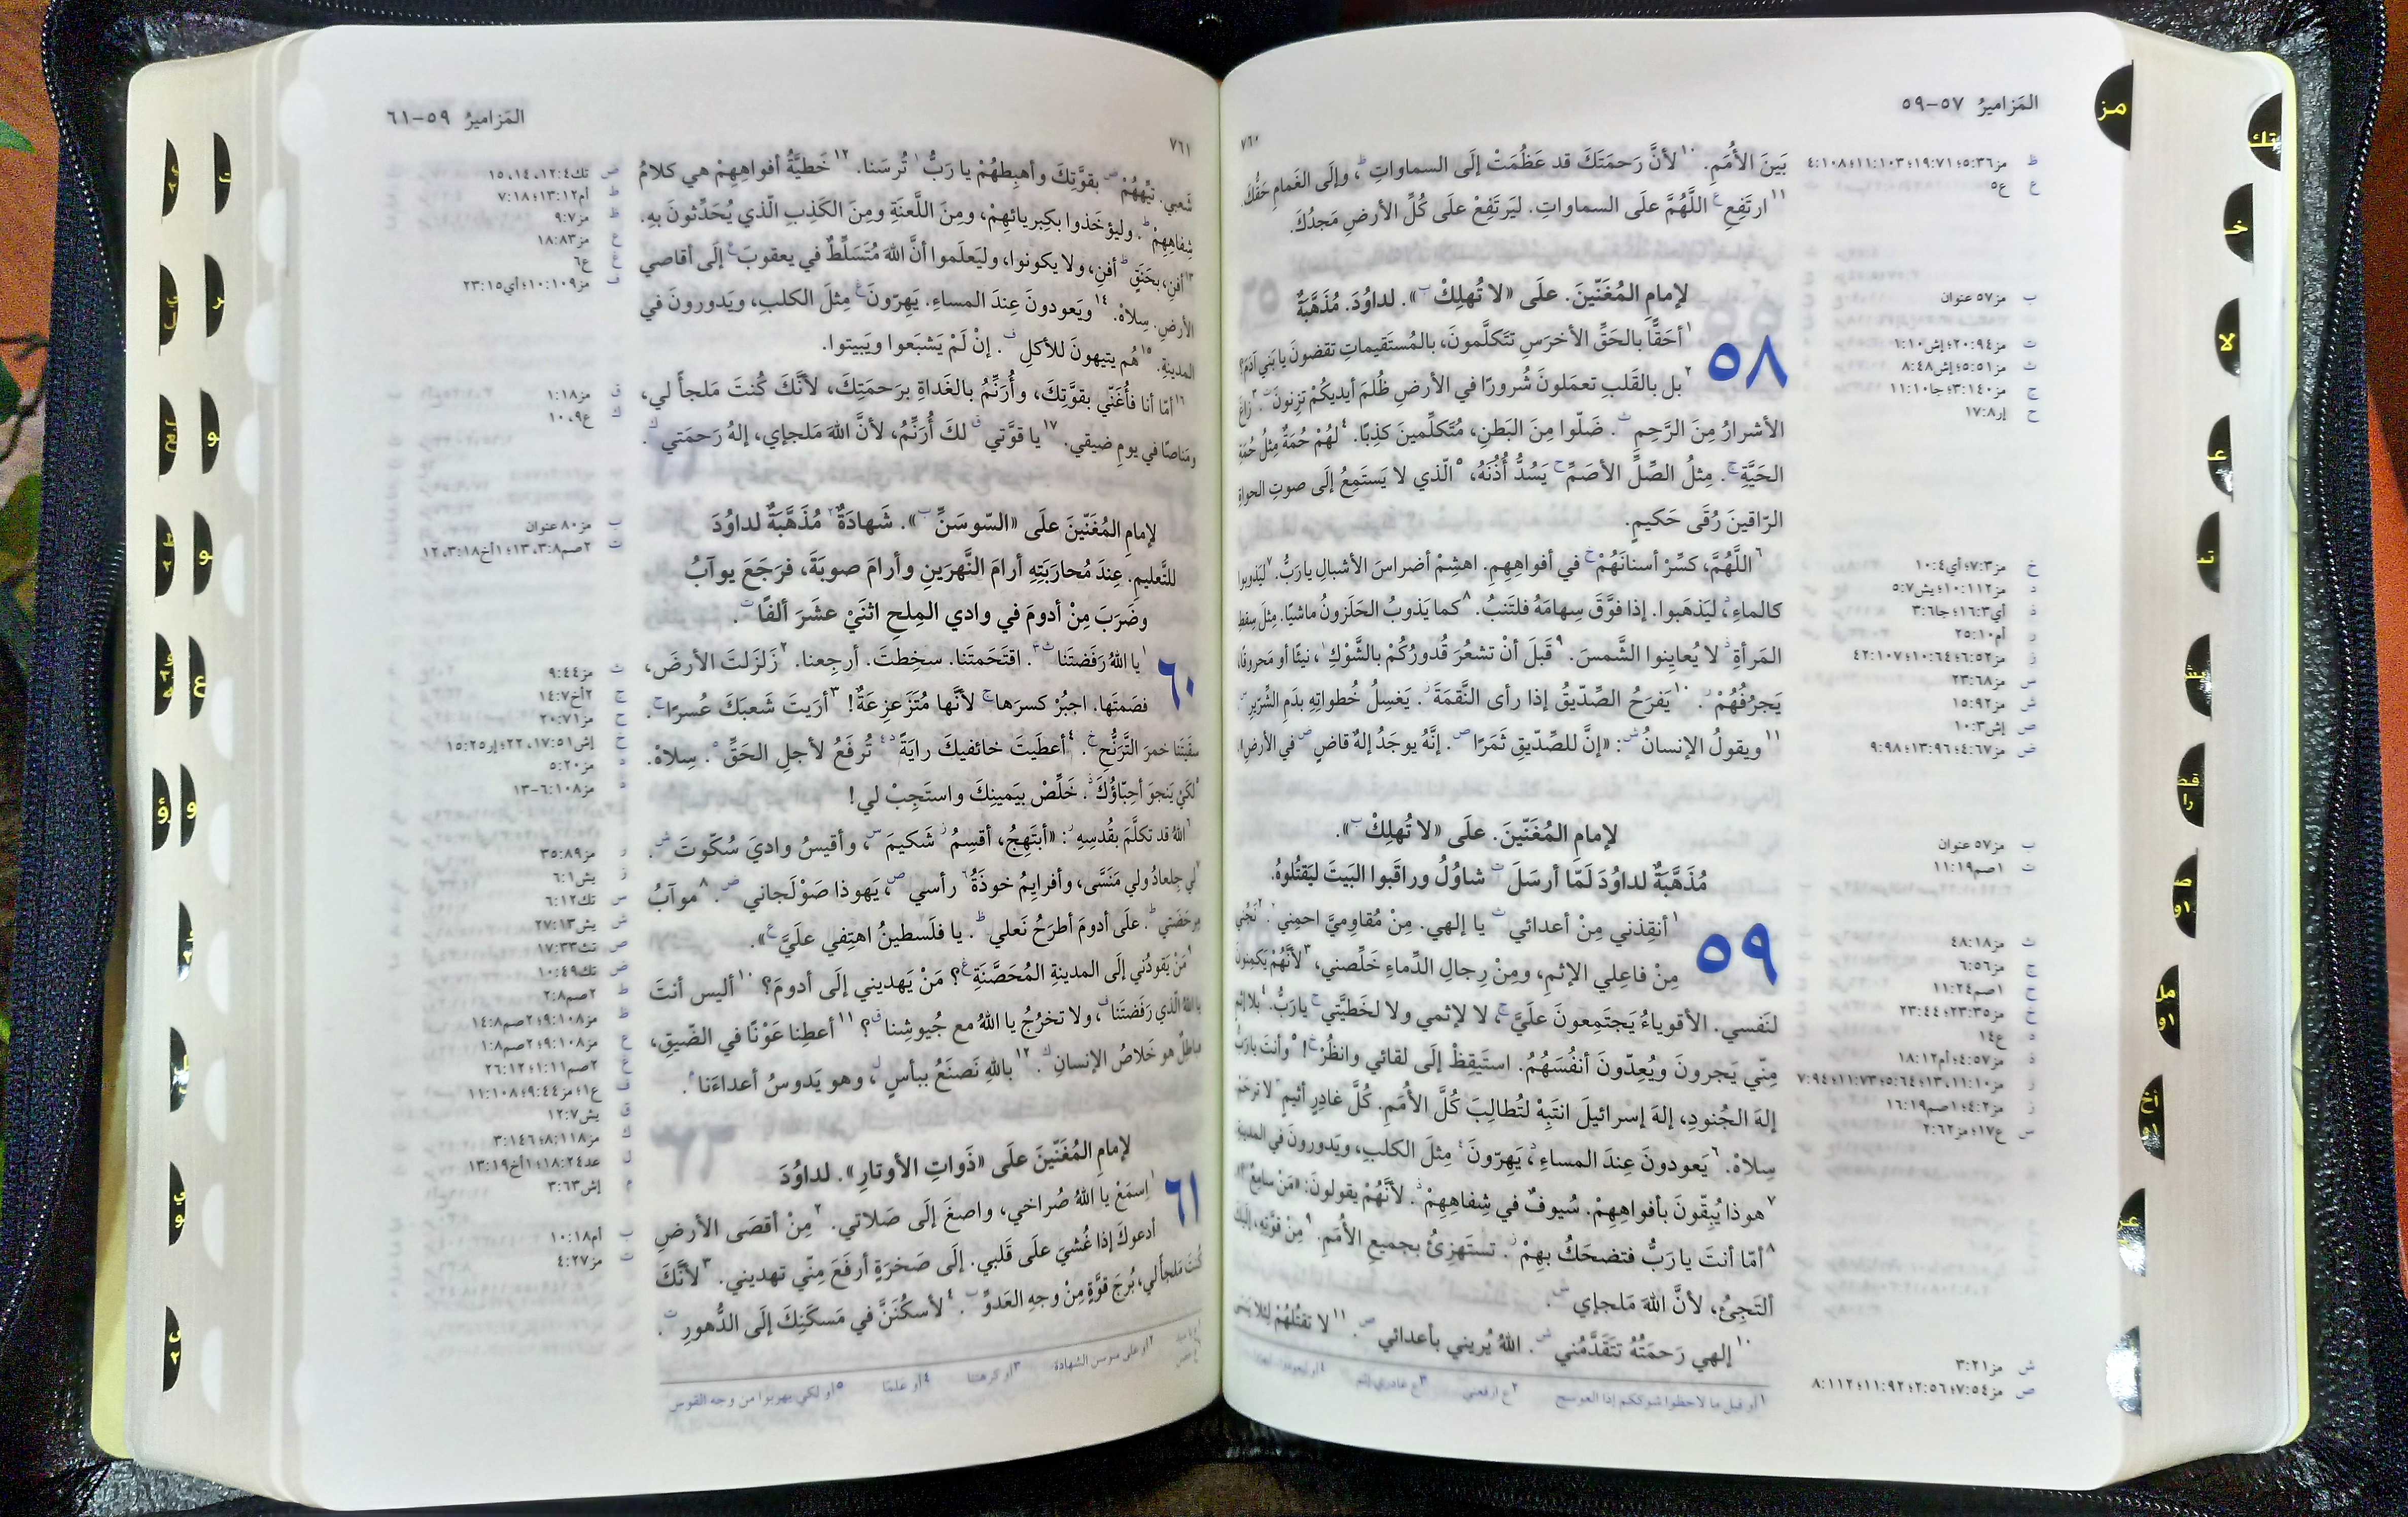 المَزاميرُ ٥٧-٥٩
٧٦٠
بَينَ الأُمَمِ. ١٠ لأنَّ رَحمَتَكَ قد عَظُمَتْ إلَى السماواتِ ط، وإلَى الغَمامِ حَقُّكَ.
١١ ارتَفِعِ ع اللَّهُمَّ علَى السماواتِ. ليَرتَفِعْ علَى كُلِّ الأرضِ مَجدُكَ.
لإمامِ المُغَنّينَ. علَى «لا تُهلِكْ ب». لداوُدَ. مُذَهَّبَةٌ
٥٨
١ أحَقًّا بالحَقِّ الأخرَسِ تتَكلَّمونَ، بالمُستَقيماتِ تقضونَ يا بَني آدَمَ؟
٢ بل بالقَلبِ تعمَلونَ شُرورًا في الأرضِ ظُلمَ أيديكُمْ تزِنونَ ت. ٣ زاغَ
الأشرارُ مِنَ الرَّحِمِ ث. ضَلّوا مِنَ البَطنِ، مُتَكلِّمينَ كذِبًا. ٤ لهُمْ حُمَةٌ مِثلُ حُمَةِ
الحَيَّةِ ج. مِثلُ الصِّلِّ الأصَمِّ ح يَسُدُّ أُذُنَهُ، ٥ الّذي لا يَستَمِعُ إلَى صوتِ الحواةِ
الرّاقينَ رُقَى حَكيمٍ.
٦ اللَّهُمَّ، كسِّرْ أسنانَهُمْ خ في أفواهِهِمِ. اهشِمْ أضراسَ الأشبالِ يا رَبُّ. ٧ ليَذوبوا
كالماءِ د، ليَذهَبوا. إذا فوَّقَ سِهامَهُ فلتَنبُ. ٨ كما يَذوبُ الحَلَزونُ ماشيًا. مِثلَ سِقطِ
المَرأةِ ذ لا يُعاينِوا الشَّمسَ. ٩ قَبلَ أنْ تشعُرَ قُدورُكُمْ بالشَّوْكِ ١، نيئًا أو مَحروقًا،
يَجرُفُهُمْ ر. ١٠ يَفرَحُ الصِّدّيقُ إذا رأى النَّقمَةَ ز. يَغسِلُ خُطواتِهِ بدَمِ الشِّرّيرِ س.
١١ ويقولُ الإنسانُ ش: «إنَّ للصِّدّيقِ ثَمَرًا ص. إنَّهُ يوجَدُ إلهٌ قاضٍ ض في الأرضِ».
لإمامِ المُغَنّينَ. علَى «لا تُهلِكْ ب».
مُذَهَّبَةٌ لداوُدَ لَمّا أرسَلَ ت شاوُلُ وراقَبوا البَيتَ ليَقتُلوهُ.
٥٩
١ أنقِذني مِنْ أعدائي ث يا إلهي. مِنْ مُقاوِميَّ احمِني ٢. ٢ نَجِّني
مِنْ فاعِلي الإثمِ، ومِنْ رِجالِ الدِّماءِ خَلِّصني، ٣ لأنَّهُمْ يَكمِنونَ
لنَفسي. الأقوياءُ يَجتَمِعونَ علَيَّ ج، لا لإثمي ولا لخَطيَّتي ح يا رَبُّ. ٤ بلا إثمٍ
مِنّي يَجرونَ ويُعِدّونَ أنفُسَهُمُ. استَيقِظْ إلَى لقائي وانظُرْ خ! ٥ وأنتَ يا رَبُّ
إلهَ الجُنودِ، إلهَ إسرائيلَ انتَبِهْ لتُطالِبَ كُلَّ الأُمَمِ. كُلَّ غادِرٍ أثيمٍ ٣ لا ترحَمْ.
سِلاهْ. ٦ يَعودونَ عِندَ المساءِ د، يَهِرّونَ ٤ مِثلَ الكلبِ، ويَدورونَ في المدينةِ.
٧ هوذا يُبِقّونَ بأفواهِهِمْ. سُيوفٌ في شِفاهِهِمْ ذ. لأنَّهُمْ يقولونَ: «مَنْ سامِعٌ ر؟».
٨ أمّا أنتَ يا رَبُّ فتضحَكُ بهِمْ ز. تستَهزِئُ بجميعِ الأُمَمِ. ٩ مِنْ قوَّتِهِ، إلَيكَ
ألتَجِئُ، لأنَّ اللهَ مَلجإي س.
١٠ إلهي رَحمَتُهُ تتَقَدَّمُني ش. اللهُ يُريني بأعدائي ص. ١١ لا تقتُلهُمْ لئلا يَنسَى
١ أو قبل ما لاحظوا شوككم إذا العوسج ٢ ع ارفعني ٣ ع غادري إثم
ظ مز٥:٣٦؛ ١٩:٧١؛ ١١:١٠٣؛ ٤:١٠٨
ع ع٥
ب مز٥٧ عنوان
ت مز٢٠:٩٤؛ إش١:١٠
ث مز٥:٥١؛ إش٨:٤٨
ج مز٣:١٤٠؛ جا١١:١٠
ح إر١٧:٨
خ مز٧:٣؛ أي١٠:٤
د مز١٠:١١٢؛ يش٥:٧
ذ أي١٦:٣؛ جا٣:٦
ر أم٢٥:١٠
ز مز٦:٥٢؛ ١٠:٦٤؛ ٤٢:١٠٧
س مز٢٣:٦٨
ش مز١٥:٩٢
ص إش١٠:٣
ض مز٤:٦٧؛ ١٣:٩٦؛ ٩:٩٨
ب مز٥٧ عنوان
ت ١صم١١:١٩
ث مز٤٨:١٨
ج مز٦:٥٦
ح ١صم١١:٢٤
خ مز٢٣:٣٥؛ ٢٣:٤٤
د ع١٤
ذ مز٤:٥٧؛ أم١٨:١٢
ر مز١١:١٠، ١٣؛ ٥:٦٤؛ ١١:٧٣؛ ٧:٩٤
ز مز٤:٢؛ ١صم١٦:١٩
س ع١٧؛ مز٢:٦٢
ش مز٣:٢١
ص مز٧:٥٤؛ ٢:٥٦؛ ١١:٩٢؛ ٨:١١٢
المَزاميرُ ٥٩-٦١
٧٦١
شَعبي. تيِّههُمْ ض بقوَّتِكَ وأهبِطهُمْ يا رَبُّ ١ تُرسَنا. ١٢ خَطيَّةُ أفواهِهِمْ هي كلامُ
شِفاهِهِمْ ط. وليؤخَذوا بكِبريائهِمْ، ومِنَ اللَّعنَةِ ومِنَ الكَذِبِ الّذي يُحَدِّثونَ بهِ.
١٣ أفنِ، بحَنَقٍ ظ أفنِ، ولا يكونوا، وليَعلَموا أنَّ اللهَ مُتَسَلِّطٌ في يعقوبَ ع إلَى أقاصي
الأرضِ. سِلاهْ. ١٤ ويَعودونَ عِندَ المساءِ. يَهِرّونَ غ مِثلَ الكلبِ، ويَدورونَ في
المدينةِ. ١٥ هُم يتيهونَ للأكلِ ف. إنْ لَمْ يَشبَعوا ويَبيتوا.
١٦ أمّا أنا فأُغَنّي بقوَّتِكَ، وأُرَنِّمُ بالغَداةِ برَحمَتِكَ، لأنَّكَ كُنتَ مَلجأً لي،
ومَناصًا في يومِ ضيقي. ١٧ يا قوَّتي ق لكَ أُرَنِّمُ، لأنَّ اللهَ مَلجإي، إلهُ رَحمَتي ك.
لإمامِ المُغَنّينَ علَى «السّوسَنِّ ب». شَهادَةٌ ٢ مُذَهَّبَةٌ لداوُدَ
للتَّعليمِ. عِندَ مُحارَبَتِهِ أرامَ النَّهرَينِ وأرامَ صوبَةَ، فرَجَعَ يوآبُ
وضَرَبَ مِنْ أدومَ في وادي المِلحِ اثنَيْ عشَرَ ألفًا ت.
٦٠
١ يا اللهُ رَفَضتَنا ث ٣. اقتَحَمتَنا. سخِطتَ. أرجِعنا. ٢ زَلزَلتَ الأرضَ،
فصَمتَها. اجبُرْ كسرَها ج لأنَّها مُتَزَعزِعَةٌ! ٣ أرَيتَ شَعبَكَ عُسرًا ح.
سقَيتَنا خمرَ التَّرَنُّحِ خ. ٤ أعطَيتَ خائفيكَ رايَةً د ٤ تُرفَعُ لأجلِ الحَقِّ ٥. سِلاهْ.
٥ لكَيْ يَنجوَ أحِبّاؤُكَ ذ. خَلِّصْ بيَمينِكَ واستَجِبْ لي!
٦ اللهُ قد تكلَّمَ بقُدسِهِ ر: «أبتَهِجُ، أقسِمُ ز شَكيمَ س، وأقيسُ واديَ سُكّوتَ ش.
٧ لي جِلعادُ ولي مَنَسَّى، وأفرايِمُ خوذَةُ ٦ رأسي ص، يَهوذا صَوْلَجاني ض. ٨ موآبُ
مِرحَضَتي ط. علَى أدومَ أطرَحُ نَعلي ظ. يا فلَسطينُ اهتِفي علَيَّ ع».
٩ مَنْ يَقودُني إلَى المدينةِ المُحَصَّنَةِ غ؟ مَنْ يَهديني إلَى أدومَ؟ ١٠ أليس أنتَ
يا اللهُ الّذي رَفَضتَنا ف، ولا تخرُجُ يا اللهُ مع جُيوشِنا ق؟ ١١ أعطِنا عَوْنًا في الضّيقِ،
فباطِلٌ هو خَلاصُ الإنسانِ ك. ١٢ باللهِ نَصنَعُ ببأسٍ ل، وهو يَدوسُ أعداءَنا م.
لإمامِ المُغَنّينَ علَى «ذَواتِ الأوتارِ». لداوُدَ
٦١
١ اِسمَعْ يا اللهُ صُراخي، واصغَ إلَى صَلاتي. ٢ مِنْ أقصَى الأرضِ
أدعوكَ إذا غُشيَ علَى قَلبي. إلَى صَخرَةٍ أرفَعَ مِنّي تهديني. ٣ لأنَّكَ
كُنتَ مَلجأً لي، بُرجَ قوَّةٍ مِنْ وجهِ العَدوِّ ب. ٤ لأسكُنَنَّ في مَسكَنِكَ إلَى الدُّهورِ ت.
٢ أو على سوسن الشهادة ٣ أو كرهتنا ٤ أو علمًا ٥ أو لكي يهربوا من وجه القوس
ض تك١٢:٤، ١٤، ١٥
ط أم١٣:١٢؛ ٧:١٨
ظ مز٩:٧
ع مز١٨:٨٣
غ ع٦
ف مز١٠:١٠٩؛ أي٢٣:١٥
ق مز١:١٨
ك ع٩، ١٠
ب مز٨٠ عنوان
ت ٢صم٣:٨، ١٣؛ ١أخ٣:١٨، ١٢
ث مز٩:٤٤
ج ٢أخ١٤:٧
ح مز٢٠:٧١
خ إش١٧:٥١، ٢٢؛ إر١٥:٢٥
د مز٥:٢٠
ذ مز٦:١٠٨-١٣
ر مز٣٥:٨٩
ز يش٦:١
س تك٦:١٢
ش يش٢٧:١٣
ص تث١٧:٣٣
ض تك١٠:٤٩
ط ٢صم٢:٨
ظ مز٩:١٠٨؛ ٢صم١٤:٨
ع مز٩:١٠٨؛ ٢صم١:٨
غ ٢صم١:١١؛ ٢٦:١٢
ف ع١؛ مز٩:٤٤؛ ١١:١٠٨
ق يش١٢:٧
ك مز٨:١١٨؛ ٣:١٤٦
ل عد١٨:٢٤؛ ١أخ١٣:١٩
م إش٣:٦٣
ب أم١٠:١٨
ت مز٤:٢٧
مز
تك
خر
لا
عد
تث